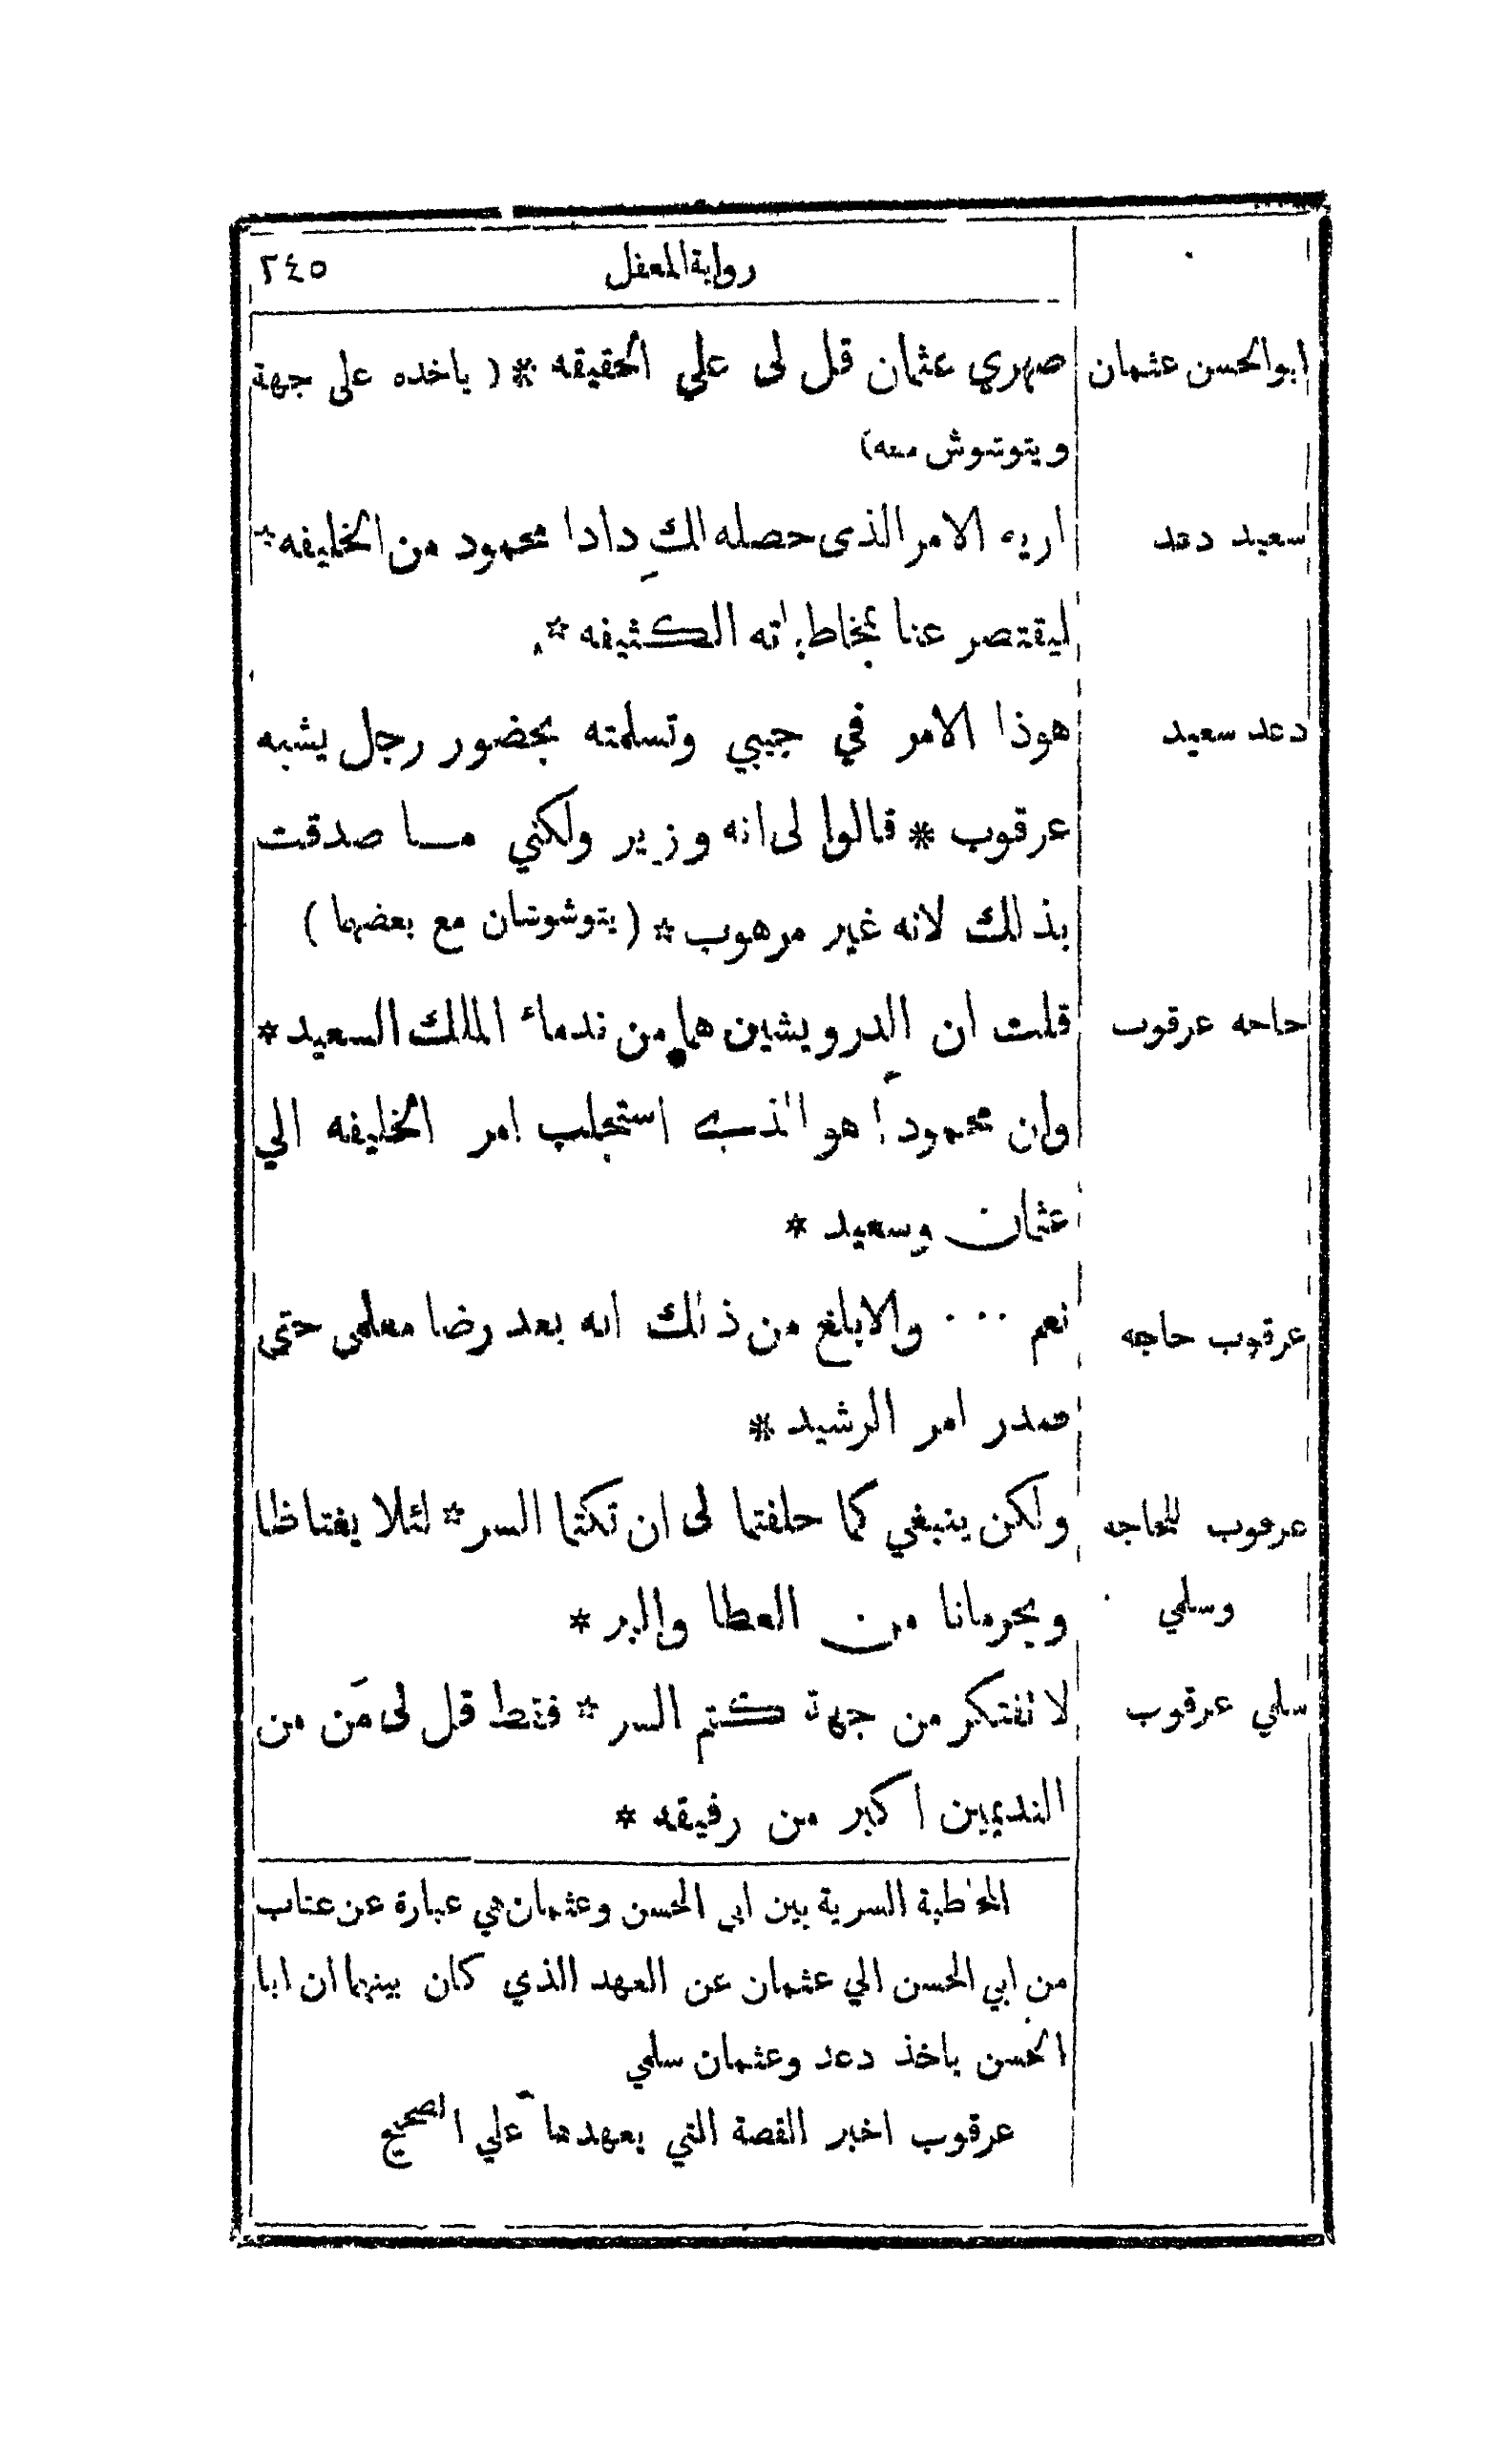 رواية المغفل ٢٤٥
ابوالحسن عثمان صهري عثمان قل لى علي الحقيقه * ( ياخده على جهة
ويتوشوش معه)
سعيد دعد اريه الامر الذى حصله الكِ دادا محمود من الخليفه *
ليقتصر عنا بمخاطباته الكثيفه *
دعد سعيد هوذا الامر في جيبي وتسلمته بحضور رجل يشبه
عرقوب * قالوا لى انه وزير ولكني مــا صدقت
بذالك لانه غير مرهوب * (يتوشوشان مع بعضهما)
حاجه عرقوب قلت ان الدرويشين هما من ندماء الملك السعيد *
وان محمودا هو الذي استجلب امر الخليفه الي
عثمان وسعيد *
عرقوب حاجه نعم ... والابلغ من ذلك انه بعد رضا معلمي حتى
صدر امر الرشيد *
عرقوب للحاجه ولكن ينبغي كما حلفتما لى ان تكتما السر * لئلا يغتاظا
وسلمي ويحرمانا من العطا والبر *
سلمي عرقوب لا تفتكر من جهة كتم السر * فقط قل لى مَن من
النديمين اكبر من رفيقه *
المخاطبة السرية بين ابي الحسن وعثمان هي عبارة عن عتاب
من ابي الحسن الي عثمان عن العهد الذي كان بينهما ان ابا
الحسن ياخذ دعد وعثمان سلمي
عرقوب اخبر القصة التي يعهدها علي الصحيح